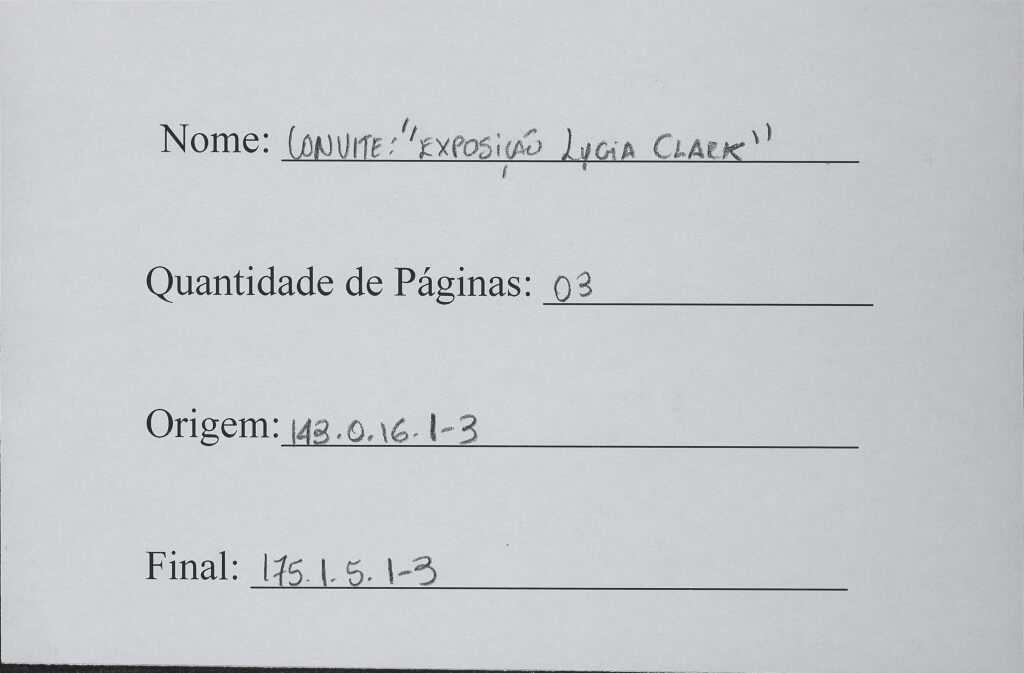 Nome: CONVITE: "EXPOSIÇÃO LYGIA CLARK"
Quantidade de Páginas: 03
Origem: 143.0.16.1-3
Final: 175.1.5.1-3